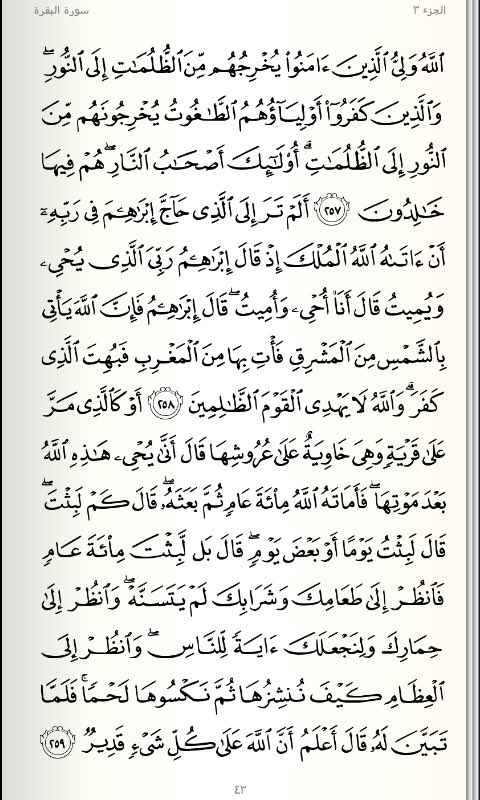 الجزء ٣
سورة البقرة
ٱللَّهُ وَلِىُّ ٱلَّذِينَ ءَامَنُوا۟ يُخْرِجُهُم مِّنَ ٱلظُّلُمَـٰتِ إِلَى ٱلنُّورِ ۖ
وَٱلَّذِينَ كَفَرُوٓا۟ أَوْلِيَآؤُهُمُ ٱلطَّـٰغُوتُ يُخْرِجُونَهُم مِّنَ
ٱلنُّورِ إِلَى ٱلظُّلُمَـٰتِ ۗ أُو۟لَـٰٓئِكَ أَصْحَـٰبُ ٱلنَّارِ ۖ هُمْ فِيهَا
خَـٰلِدُونَ ٢٥٧ أَلَمْ تَرَ إِلَى ٱلَّذِى حَآجَّ إِبْرَٰهِـۧمَ فِى رَبِّهِۦٓ
أَنْ ءَاتَىٰهُ ٱللَّهُ ٱلْمُلْكَ إِذْ قَالَ إِبْرَٰهِـۧمُ رَبِّىَ ٱلَّذِى يُحْىِۦ
وَيُمِيتُ قَالَ أَنَا۠ أُحْىِۦ وَأُمِيتُ ۖ قَالَ إِبْرَٰهِـۧمُ فَإِنَّ ٱللَّهَ يَأْتِى
بِٱلشَّمْسِ مِنَ ٱلْمَشْرِقِ فَأْتِ بِهَا مِنَ ٱلْمَغْرِبِ فَبُهِتَ ٱلَّذِى
كَفَرَ ۗ وَٱللَّهُ لَا يَهْدِى ٱلْقَوْمَ ٱلظَّـٰلِمِينَ ٢٥٨ أَوْ كَٱلَّذِى مَرَّ
عَلَىٰ قَرْيَةٍ وَهِىَ خَاوِيَةٌ عَلَىٰ عُرُوشِهَا قَالَ أَنَّىٰ يُحْىِۦ هَـٰذِهِ ٱللَّهُ
بَعْدَ مَوْتِهَا ۖ فَأَمَاتَهُ ٱللَّهُ مِا۟ئَةَ عَامٍ ثُمَّ بَعَثَهُۥ ۖ قَالَ كَمْ لَبِثْتَ ۖ
قَالَ لَبِثْتُ يَوْمًا أَوْ بَعْضَ يَوْمٍ ۖ قَالَ بَل لَّبِثْتَ مِا۟ئَةَ عَامٍ
فَٱنظُرْ إِلَىٰ طَعَامِكَ وَشَرَابِكَ لَمْ يَتَسَنَّهْ ۖ وَٱنظُرْ إِلَىٰ
حِمَارِكَ وَلِنَجْعَلَكَ ءَايَةً لِّلنَّاسِ ۖ وَٱنظُرْ إِلَى
ٱلْعِظَامِ كَيْفَ نُنشِزُهَا ثُمَّ نَكْسُوهَا لَحْمًا ۚ فَلَمَّا
تَبَيَّنَ لَهُۥ قَالَ أَعْلَمُ أَنَّ ٱللَّهَ عَلَىٰ كُلِّ شَىْءٍ قَدِيرٌ ٢٥٩
٤٣